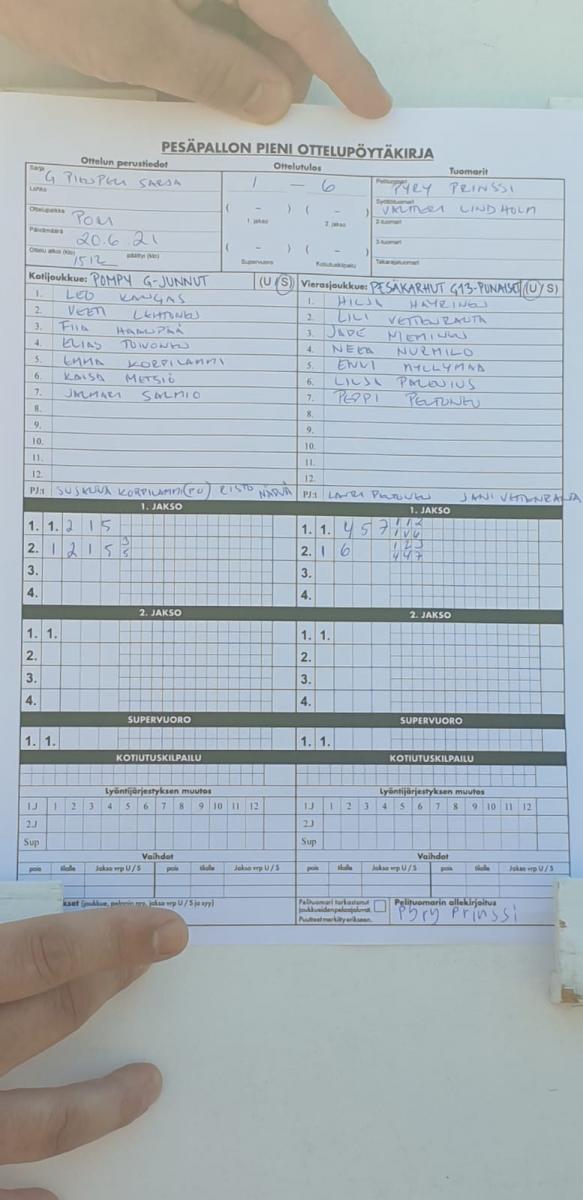 PESÄPALLON PIENI OTTELUPÖYTÄKIRJA
Ottelun perustiedot Ottelutulos Tuomarit
Sarja G PIENPELI SARJA 1 - 6 Pelituomari PYRY PRINSSI
Lohko ( - ) ( - ) Syöttötuomari VALTTERI LINDHOLM
Ottelupaikka PORI 1. jakso 2. jakso 2-tuomari
Päivämäärä 20.6 21 ( - ) ( - ) 3-tuomari
Ottelu alkoi (klo) 1512 päättyi (klo) Supervuoro Kotiutuskilpailu Takarajatuomari
Kotijoukkue: POMPY G-JUNNUT (U/S) Vierasjoukkue: PESÄKARHUT G13-PUNAISET (U/S)
1. LEO KANGAS 1. HILJA HÄYRINEN
2. VEETI LEHTONEN 2. LILI VETTENRANTA
3. FIIA HAANPÄÄ 3. JADE NIEMINEN
4. ELIAS TOIVONEN 4. NEEA NURMILO
5. EMMA KORPILAMMI 5. ENNI MYLLYMAA
6. KAISA METSIÖ 6. LILJA PALENIUS
7. JALMARI SALMIO 7. PEPPI PELTONEN
8. 8.
9. 9.
10. 10.
11. 11.
12. 12.
PJ:t KORPILAMMI (PJ) RISTO PJ:t LAURI PELTONEN JANI VETTENRANTA
1. JAKSO 1. JAKSO
1. 1. 2 1 5 1. 1. 4 5 7
2. 1 2 1 5 3 5 2. 1 6 1 2 3 4 4 7
3. 3.
4. 4.
2. JAKSO 2. JAKSO
1. 1. 1. 1.
2. 2.
3. 3.
4. 4.
SUPERVUORO SUPERVUORO
1. 1. 1. 1.
KOTIUTUSKILPAILU KOTIUTUSKILPAILU
Lyöntijärjestyksen muutos Lyöntijärjestyksen muutos
1.J 1 2 3 4 5 6 7 8 9 10 11 12 1.J 1 2 3 4 5 6 7 8 9 10 11 12
2.J 2.J
Sup Sup
Vaihdot Vaihdot
pois tilalle Jakso vrp U / S pois tilalle Jakso vrp U / S pois tilalle Jakso vrp U / S pois tilalle Jakso vrp U / S
(joukkue, pelaajan nro, jakso vrp U / S ja syy) Pelituomari tarkastanut Pelituomarin allekirjoitus
joukkueiden pelaajaluvat. Pyry Prinssi
Puutteet merkitty erikseen.